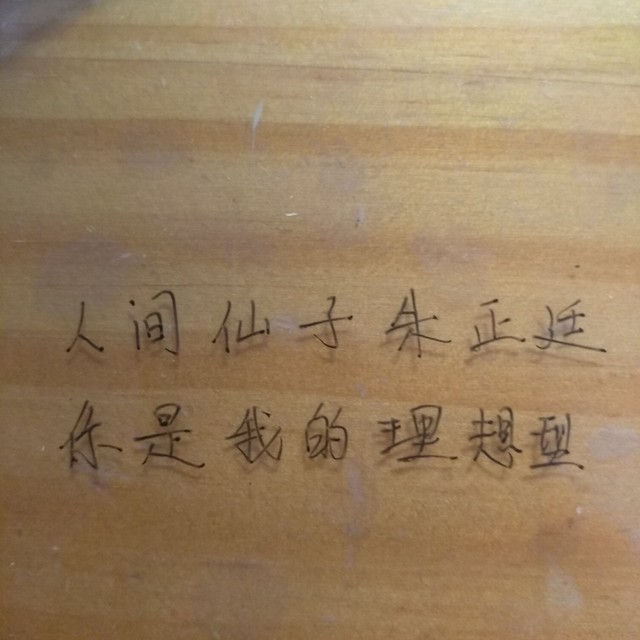 人间仙子朱正廷
你是我的理想型